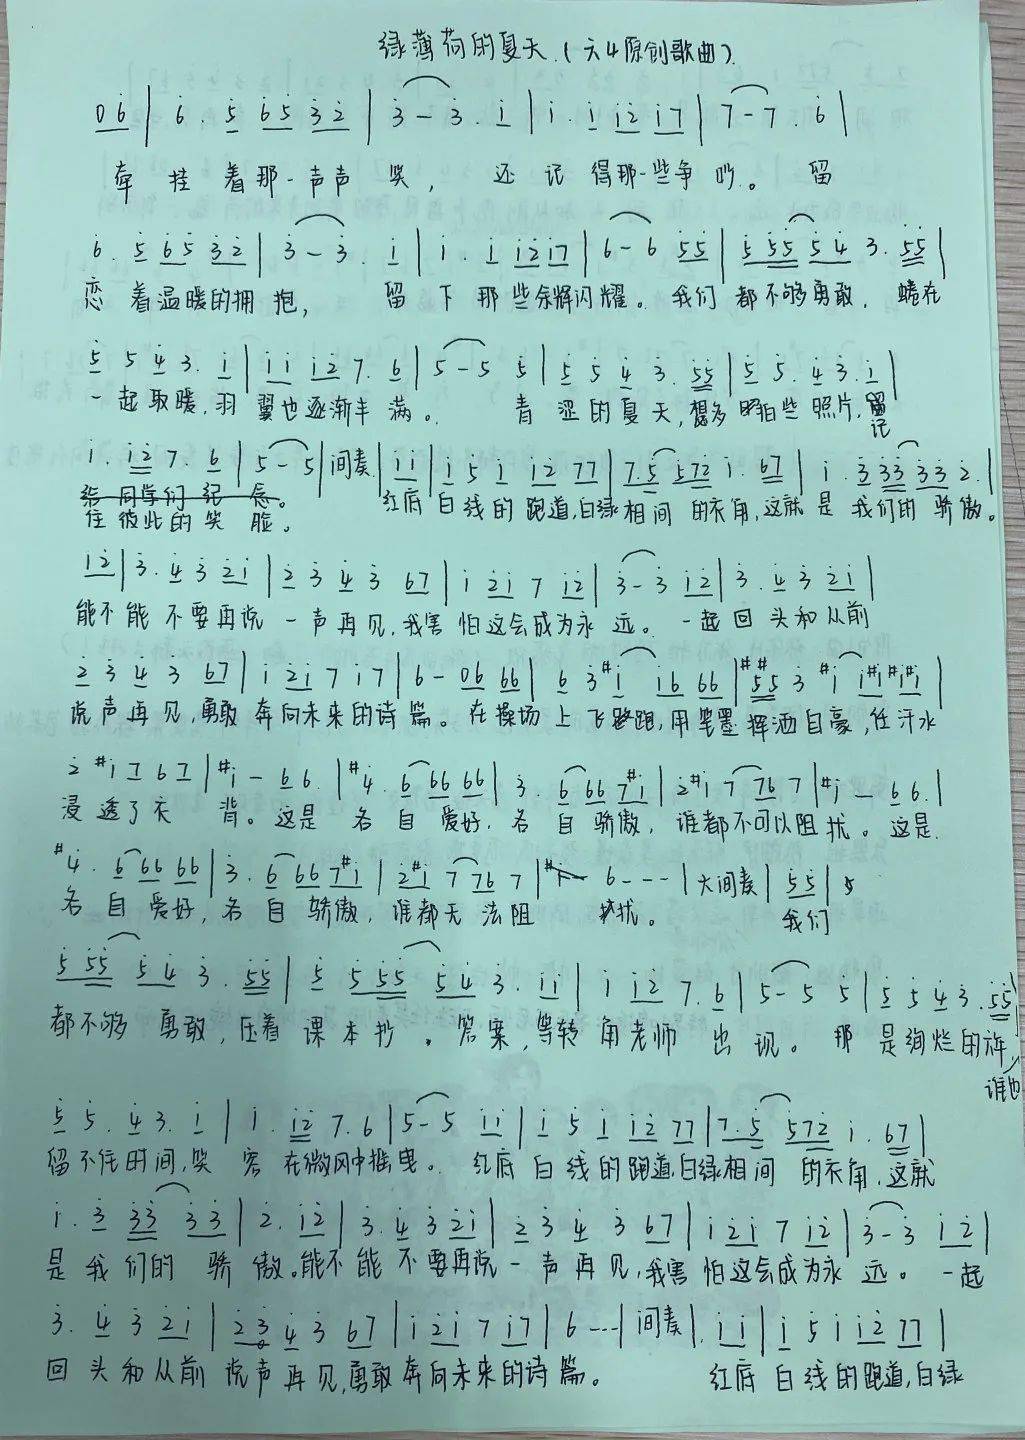 绿薄荷的夏天.(六4原创歌曲).
0 6 | 6. 5 6 5 3 2 | 3 — 3. i | i. i i 2 i 7 | 7 - 7. 6 |
牵 挂 着 那一声声 笑, 还 记 得那一些争吵。 留
6. 5 6 5 3 2 | 3 — 3. i | i. i i 2 i 7 | 6 - 6 5 5 | 5 5 5 5 4 3. 5 5 |
恋 着温暖的拥抱, 留 下 那些余辉闪耀。我们 都不够勇敢, 蜷在
5 5 4 3. i | i i i 2 7. 6 | 5 - 5 5 | 5 5 4 3. 5 5 | 5 5. 4 3. i |
一起取暖,羽 翼也逐渐丰 满。 青 涩的夏天,想多 拍些照片,留
记
i. i 2 7 6 | 5 - 5 | 间奏 | i i | i 5 i i 2 7 7 | 7. 5 5 7 2 i. 6 7 | i. 3 3 3 3 3 2. |
同学们 纪 念。
住彼此的笑 脸。 红底 白线的 跑道,白绿相间 的衣角,这就 是 我们的 骄傲。
i 2 | 3. 4 3 2 i | 2 3 4 3 6 7 | i 2 i 7 i 2 | 3 - 3 i 2 | 3. 4 3 2 i |
能不 能 不要再说 一声再见,我害 怕这会成为永 远。 一起 回 头和从前
2 3 4 3 6 7 | i 2 i 7 i 7 | 6 - 0 6 6 6 | 6 3 #i i 6 6 6 | #5 #5 3 #i i #i #i #i |
说声再见,勇敢 奔向未来的诗 篇。在操场 上飞跑,用笔墨 挥洒自豪,任汗水
2 #i 7 6 7 | #i — 6 6. | #4. 6 6 6 6 6 | 3. 6 6 6 7 #i | 2 #i 7 7 6 7 | #i — 6 6. |
浸 透了衣 背。这是 各 自 爱好,各 自 骄傲, 谁都不可以阻 扰。这是
#4. 6 6 6 6 6 | 3. 6 6 6 7 #i | 2 #i 7 7 6 7 | #i 6 - - - | 大间奏 | 5 5 | 5
各 自 爱好, 各 自 骄傲, 谁都无 法阻 扰。 我们
5 5 5 5 4 3. 5 5 | 5 5 5 5 5 4 3. i i | i i 2 7. 6 | 5 - 5 5 | 5 5 4 3. 5 5
都不够 勇敢,压着 课 本抄 。答案,等转 角老师 出 现。 那 是绚烂的
谁也
5 5. 4 3. i | i. i 2 7. 6 | 5 - 5 i i | i 5 i i 2 7 7 | 7. 5 5 7 2 i. 6 7 |
留不住时间,笑 容 在微风中摇曳。 红底 白线的跑道,白绿相间 的衣角,这就
i. 3 3 3 3 3 | 2. i 2 | 3. 4 3 2 i | 2 3 4 3 6 7 | i 2 i 7 i 2 | 3 - 3 i 2 |
是 我们的 骄 傲。能不 能 不要再说 一 声再见,我害 怕这会成为永 远。 一起
3. 4 3 2 i | 2 3 4 3 6 7 | i 2 i 7 i 7 | 6 - - - | 间奏 | i i | i 5 i i 2 7 7 |
回 头 和从前 说声 再见,勇敢 奔向未来的诗 篇。 红底 白线的跑道,白绿